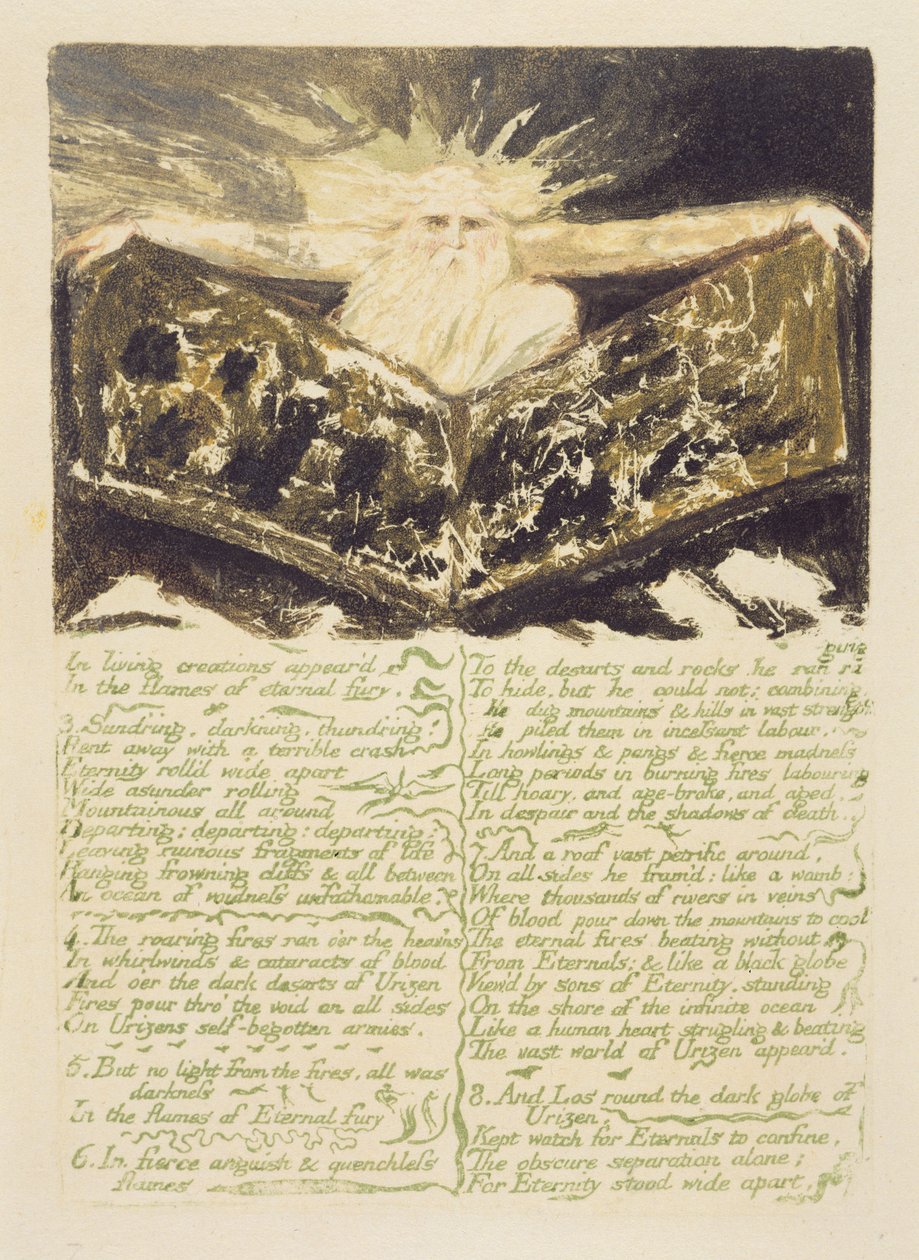 In living creations appear'd
In the flames of eternal fury.
3. Sundring, darkning, thundring!
Rent away with a terrible crash
Eternity roll'd wide apart
Wide asunder rolling
Mountainous all around
Departing; departing; departing:
Leaving ruinous fragments of life
Hanging frowning cliffs & all between
An ocean of voidneſs unfathomable.
4. The roaring fires ran o'er the heav'ns
In whirlwinds & cataracts of blood
And o'er the dark desarts of Urizen
Fires pour thro' the void on all sides
On Urizens self-begotten armies.
5. But no light from the fires. all was
darkneſs
In the flames of Eternal fury
6. In fierce anguish & quenchleſs
flames
ging
To the desarts and rocks he ran ra
To hide, but he could not: combining
He dug mountains & hills in vast strength,
He piled them in inceſsant labour,
In howlings & pangs & fierce madneſs
Long periods in burning fires labouring
Till hoary, and age-broke, and aged,
In despair and the shadows of death.
7. And a roof vast petrific around,
On all sides he fram'd: like a womb;
Where thousands of rivers in veins
Of blood pour down the mountains to cool
The eternal fires beating without
From Eternals; & like a black globe
View'd by sons of Eternity, standing
On the shore of the infinite ocean
Like a human heart strugling & beating
The vast world of Urizen appear'd.
8. And Los round the dark globe of
Urizen,
Kept watch for Eternals to confine,
The obscure separation alone;
For Eternity stood wide apart,